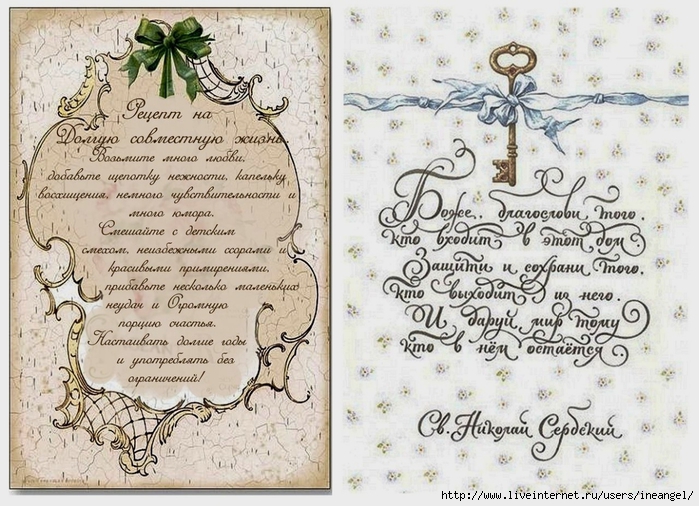 Рецепт на
Долгую совместную жизнь.
Возьмите много любви,
добавьте щепотку нежности, капельку
восхищения, немного чувствительности и
много юмора.
Смешайте с детским
смехом, неизбежными ссорами и
красивыми примирениями,
прибавьте несколько маленьких
неудач и Огромную
порцию счастья.
Настаивать долгие годы
и употреблять без
ограничений!
Боже, благослови того,
кто входит в этот дом
Защити и сохрани того,
кто выходит из него.
И даруй мир тому
кто в нём остаётся
Св. Николай Сербский
http://www.liveinternet.ru/users/ineangel/